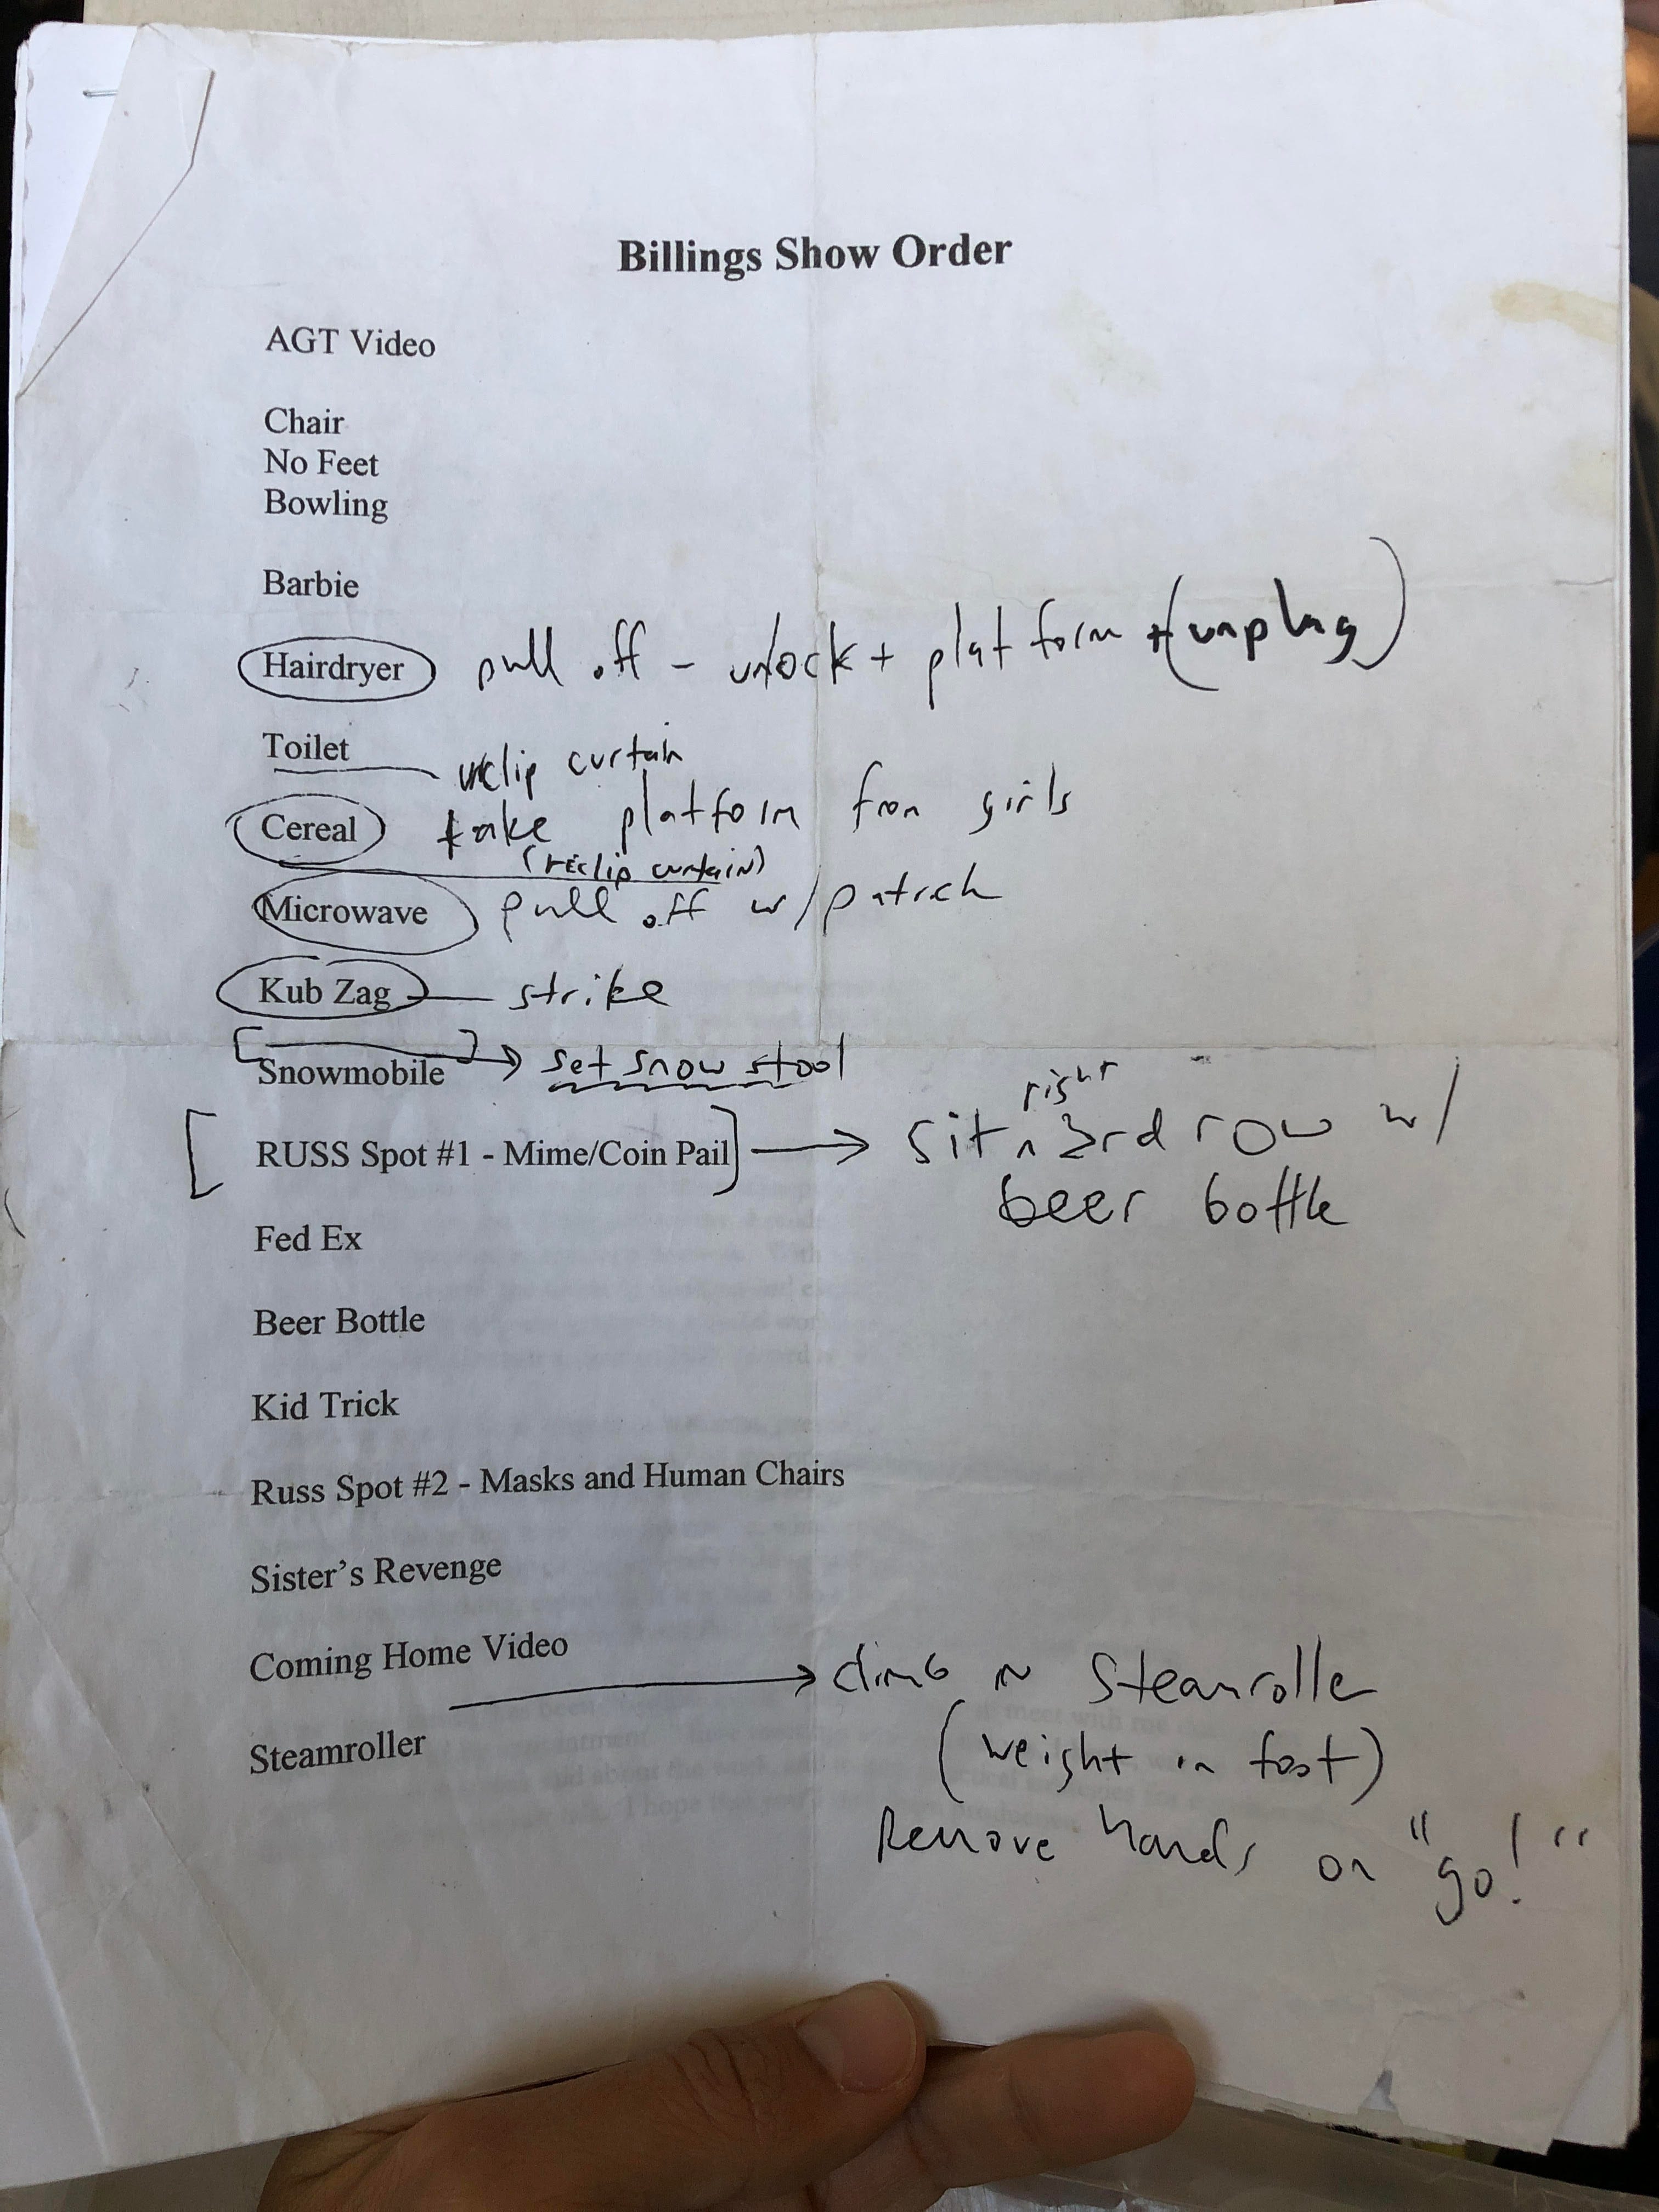 Billings Show Order
AGT Video
Chair
No Feet
Bowling
Barbie
Hairdryer pull off - unlock + platform + (unplug)
Toilet unclip curtain
Cereal take platform from girls
(reclip curtain)
Microwave pull off w/ patrick
Kub Zag strike
Snowmobile → set snow stool
right
[RUSS Spot #1 - Mime/Coin Pail] → sit ^ 3rd row w/
beer bottle
Fed Ex
Beer Bottle
Kid Trick
Russ Spot #2 - Masks and Human Chairs
Sister's Revenge
Coming Home Video
→ climb in Steamroller
Steamroller (weight in foot)
Remove hands on "go!"